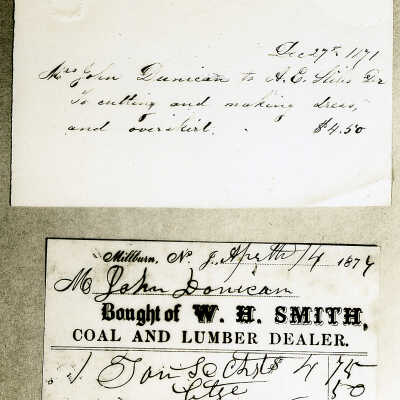 Dec 27th 1871
Mrs John Dunican to A. E. Stiles Dr
To cutting and making dress,
and overskirt. $4.50
Millburn, N. J. 14 1874
M John Donican
Bought of W. H. SMITH,
COAL AND LUMBER DEALER.
1 Ton 4 75
50